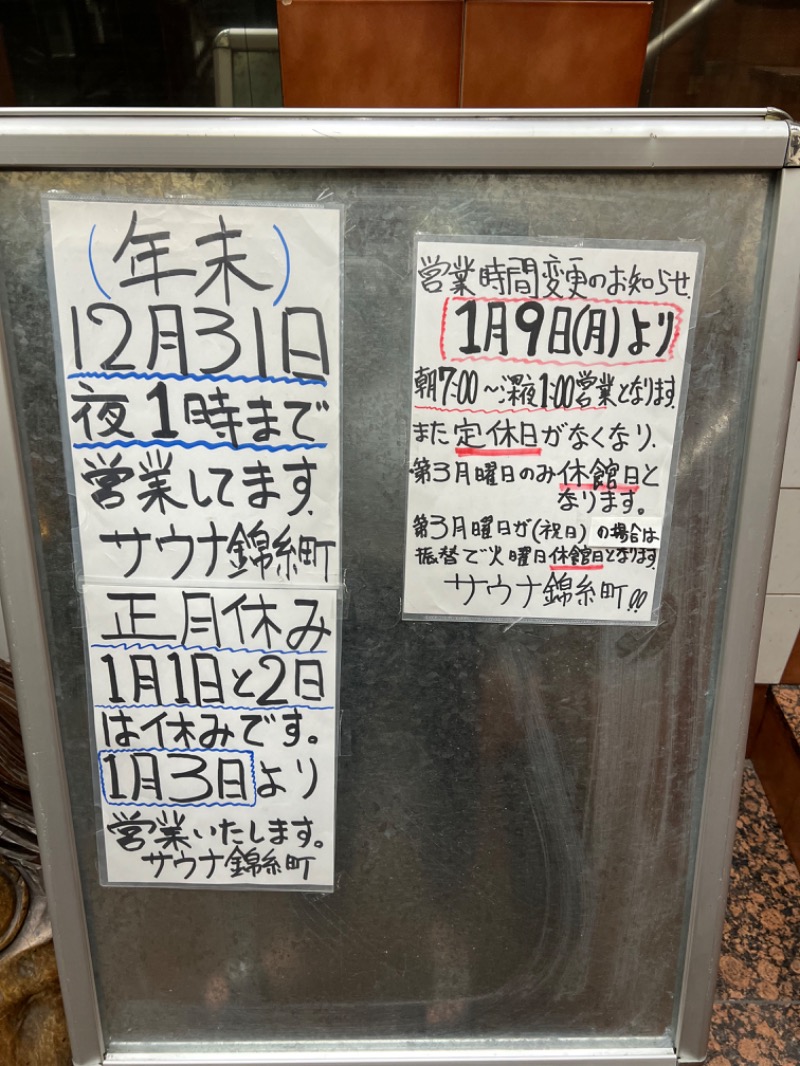 (年末)
12月31日
夜1時まで
営業してます
サウナ錦糸町
正月休み
1月1日と2日
は休みです。
1月3日より
営業いたします。
サウナ錦糸町
営業時間変更のお知らせ
1月9日(月)より
朝7:00〜深夜1:00営業となります
また定休日がなくなり、
第3月曜日のみ休館日と
なります。
第3月曜日が(祝日)の場合は
振替で火曜日休館日となります
サウナ錦糸町!!